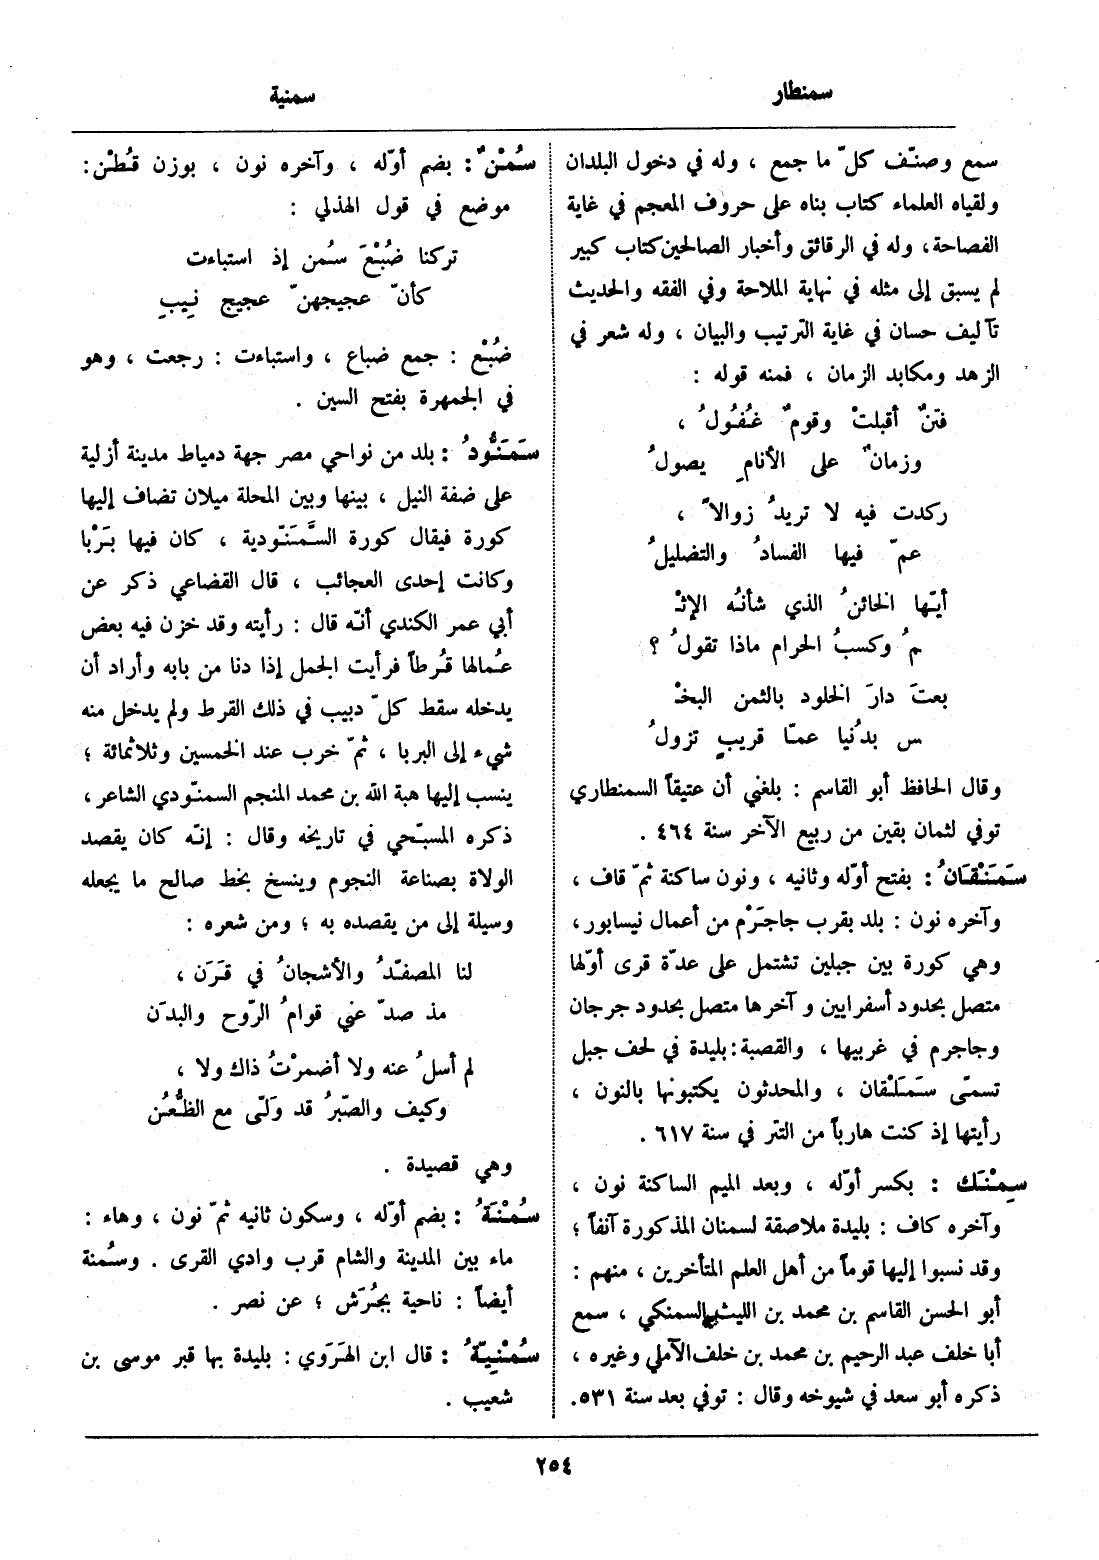 سمنطار
سمنية
سمع وصنّف كلّ ما جمع ، وله في دخول البلدان
ولقياه العلماء كتاب بناه على حروف المعجم في غاية
الفصاحة، وله في الرقائق وأخبار الصالحين كتاب كبير
لم يسبق إلى مثله في نهاية الملاحة وفي الفقه والحديث
تآليف حسان في غاية الترتيب والبيان ، وله شعر في
الزهد ومكابد الزمان ، فمنه قوله :
فتنٌ أقبلتْ وقومٌ غُفُولُ ،
وزمانٌ على الأنامِ يصولُ
ركدت فيه لا تريدُ زوالاً ،
عمّ فيها الفسادُ والتضليلُ
أيّها الخائنُ الذي شأنُه الإثْـ
ـمُ وكسبُ الحرام ماذا تقولُ ؟
بعتَ دارَ الخلود بالثمن البخْـ
ـس بدُنيا عمّا قريبٍ تزولُ
وقال الحافظ أبو القاسم : بلغني أن عتيقاً السمنطاري
توفي لثمان بقين من ربيع الآخر سنة ٤٦٤ .
سَمَنْقَانُ : بفتح أوّله وثانيه ، ونون ساكنة ثمّ قاف ،
وآخره نون : بلد بقرب جاجَرْم من أعمال نيسابور ،
وهي كورة بين جبلين تشتمل على عدّة قرى أوّلها
متصل بحدود أسفرايين و آخرها متصل بحدود جرجان
وجاجرم في غربيها ، والقصبة : بليدة في لحف جبل
تسمّى سَمَلْقان ، والمحدثون يكتبونها بالنون ،
رأيتها إذ كنت هارباً من التتر في سنة ٦١٧ .
سِمْنَك : بكسر أوّله ، وبعد الميم الساكنة نون ،
وآخره كاف : بليدة ملاصقة لسمنان المذكورة آنفاً ؛
وقد نسبوا إليها قوماً من أهل العلم المتأخرين ، منهم :
أبو الحسن القاسم بن محمد بن الليث السمنكي ، سمع
أبا خلف عبد الرحيم بن محمد بن خلف الآملي وغيره ،
ذكره أبو سعد في شيوخه وقال : توفي بعد سنة ٥٣١.
سُمْنٌ : بضم أوّله ، وآخره نون ، بوزن قُطْن :
موضع في قول الهذلي :
تركنا ضُبْعَ سُمن إذ استباءت
كأنّ عجيجهنّ عجيج نِيبِ
ضُبْع : جمع ضباع ، واستباءت : رجعت ، وهو
في الجمهرة بفتح السين .
سَمَنُّودُ : بلد من نواحي مصر جهة دمياط مدينة أزلية
على ضفة النيل ، بينها وبين المحلة ميلان تضاف إليها
كورة فيقال كورة السَّمَنّودية ، كان فيها بَرْبا
وكانت إحدى العجائب ، قال القضاعي ذكر عن
أبي عمر الكندي أنّه قال : رأيته وقد خزن فيه بعض
عُمالها قُرطاً فرأيت الجمل إذا دنا من بابه وأراد أن
يدخله سقط كلّ دبيب في ذلك القرط ولم يدخل منه
شيء إلى البربا ، ثمّ خرب عند الخمسين وثلاثمائة ؛
ينسب إليها هبة الله بن محمد المنجم السمنّودي الشاعر ،
ذكره المسبّحي في تاريخه وقال : إنّه كان يقصد
الولاة بصناعة النجوم وينسخ بخط صالح ما يجعله
وسيلة إلى من يقصده به ؛ ومن شعره :
لنا المصفّدُ والأشجانُ في قَرَن ،
مذ صدّ عني قوامُ الرّوح والبدَن
لم أسلُ عنه ولا أضمرْتُ ذاك ولا ،
وكيف والصّبرُ قد وَلّى مع الظُّعُن
وهي قصيدة .
سُمْنَةُ : بضم أوّله ، وسكون ثانيه ثمّ نون ، وهاء :
ماء بين المدينة والشام قرب وادي القرى . وسُمنة
أيضاً : ناحية بجُرَش ؛ عن نصر .
سُمْنِيّةُ : قال ابن الهَرَوي : بليدة بها قبر موسى بن
شعيب .
٢٥٤